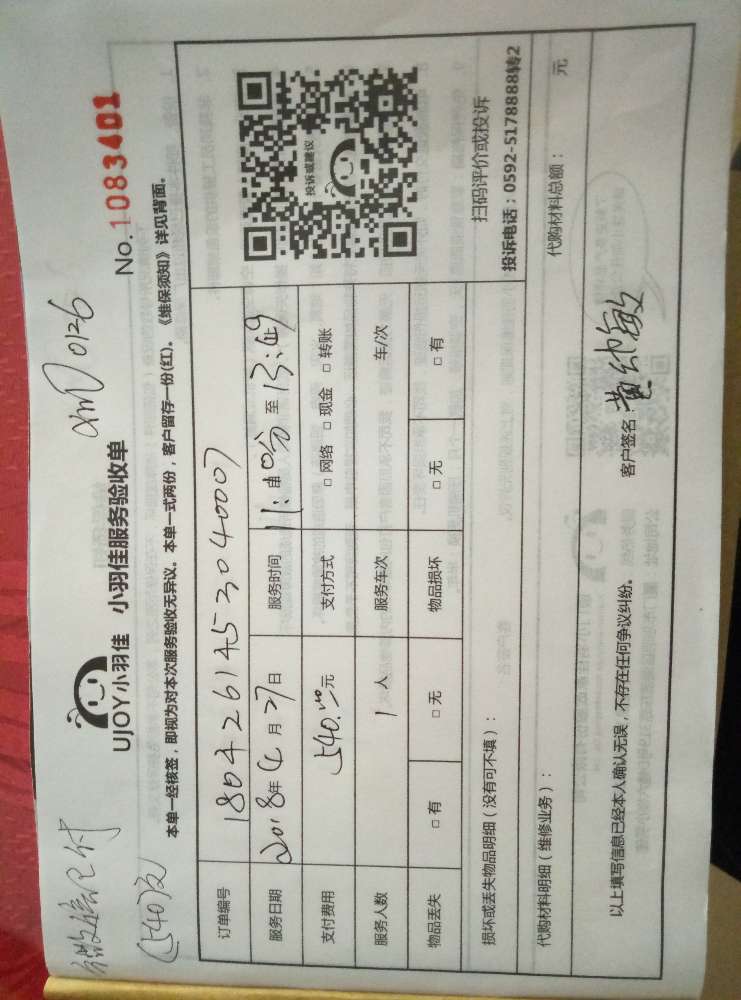 微信已付
(540)元
UJOY小羽佳 小羽佳服务验收单
XMD0126
No.1083401
本单一经核签，即视为对本次服务验收无异议。本单一式两份，客户留存一份(红)。《维保须知》详见背面。
订单编号 1804261453040007
服务日期 2018年4月27日 服务时间 11:40分 至 13:49
支付费用 540.00元 支付方式 □ 网络 □ 现金 □ 转账
服务人数 1 人 服务车次 车/次
物品丢失 □ 有 □ 无 物品损坏 □ 无 □ 有
投诉或建议
扫码评价或投诉
投诉电话：0592-5178888转2
损坏或丢失物品明细（没有可不填）：
代购材料明细（维修业务）： 代购材料总额： 元
以上填写信息已经本人确认无误，不存在任何争议纠纷。 客户签名：黄幼敏